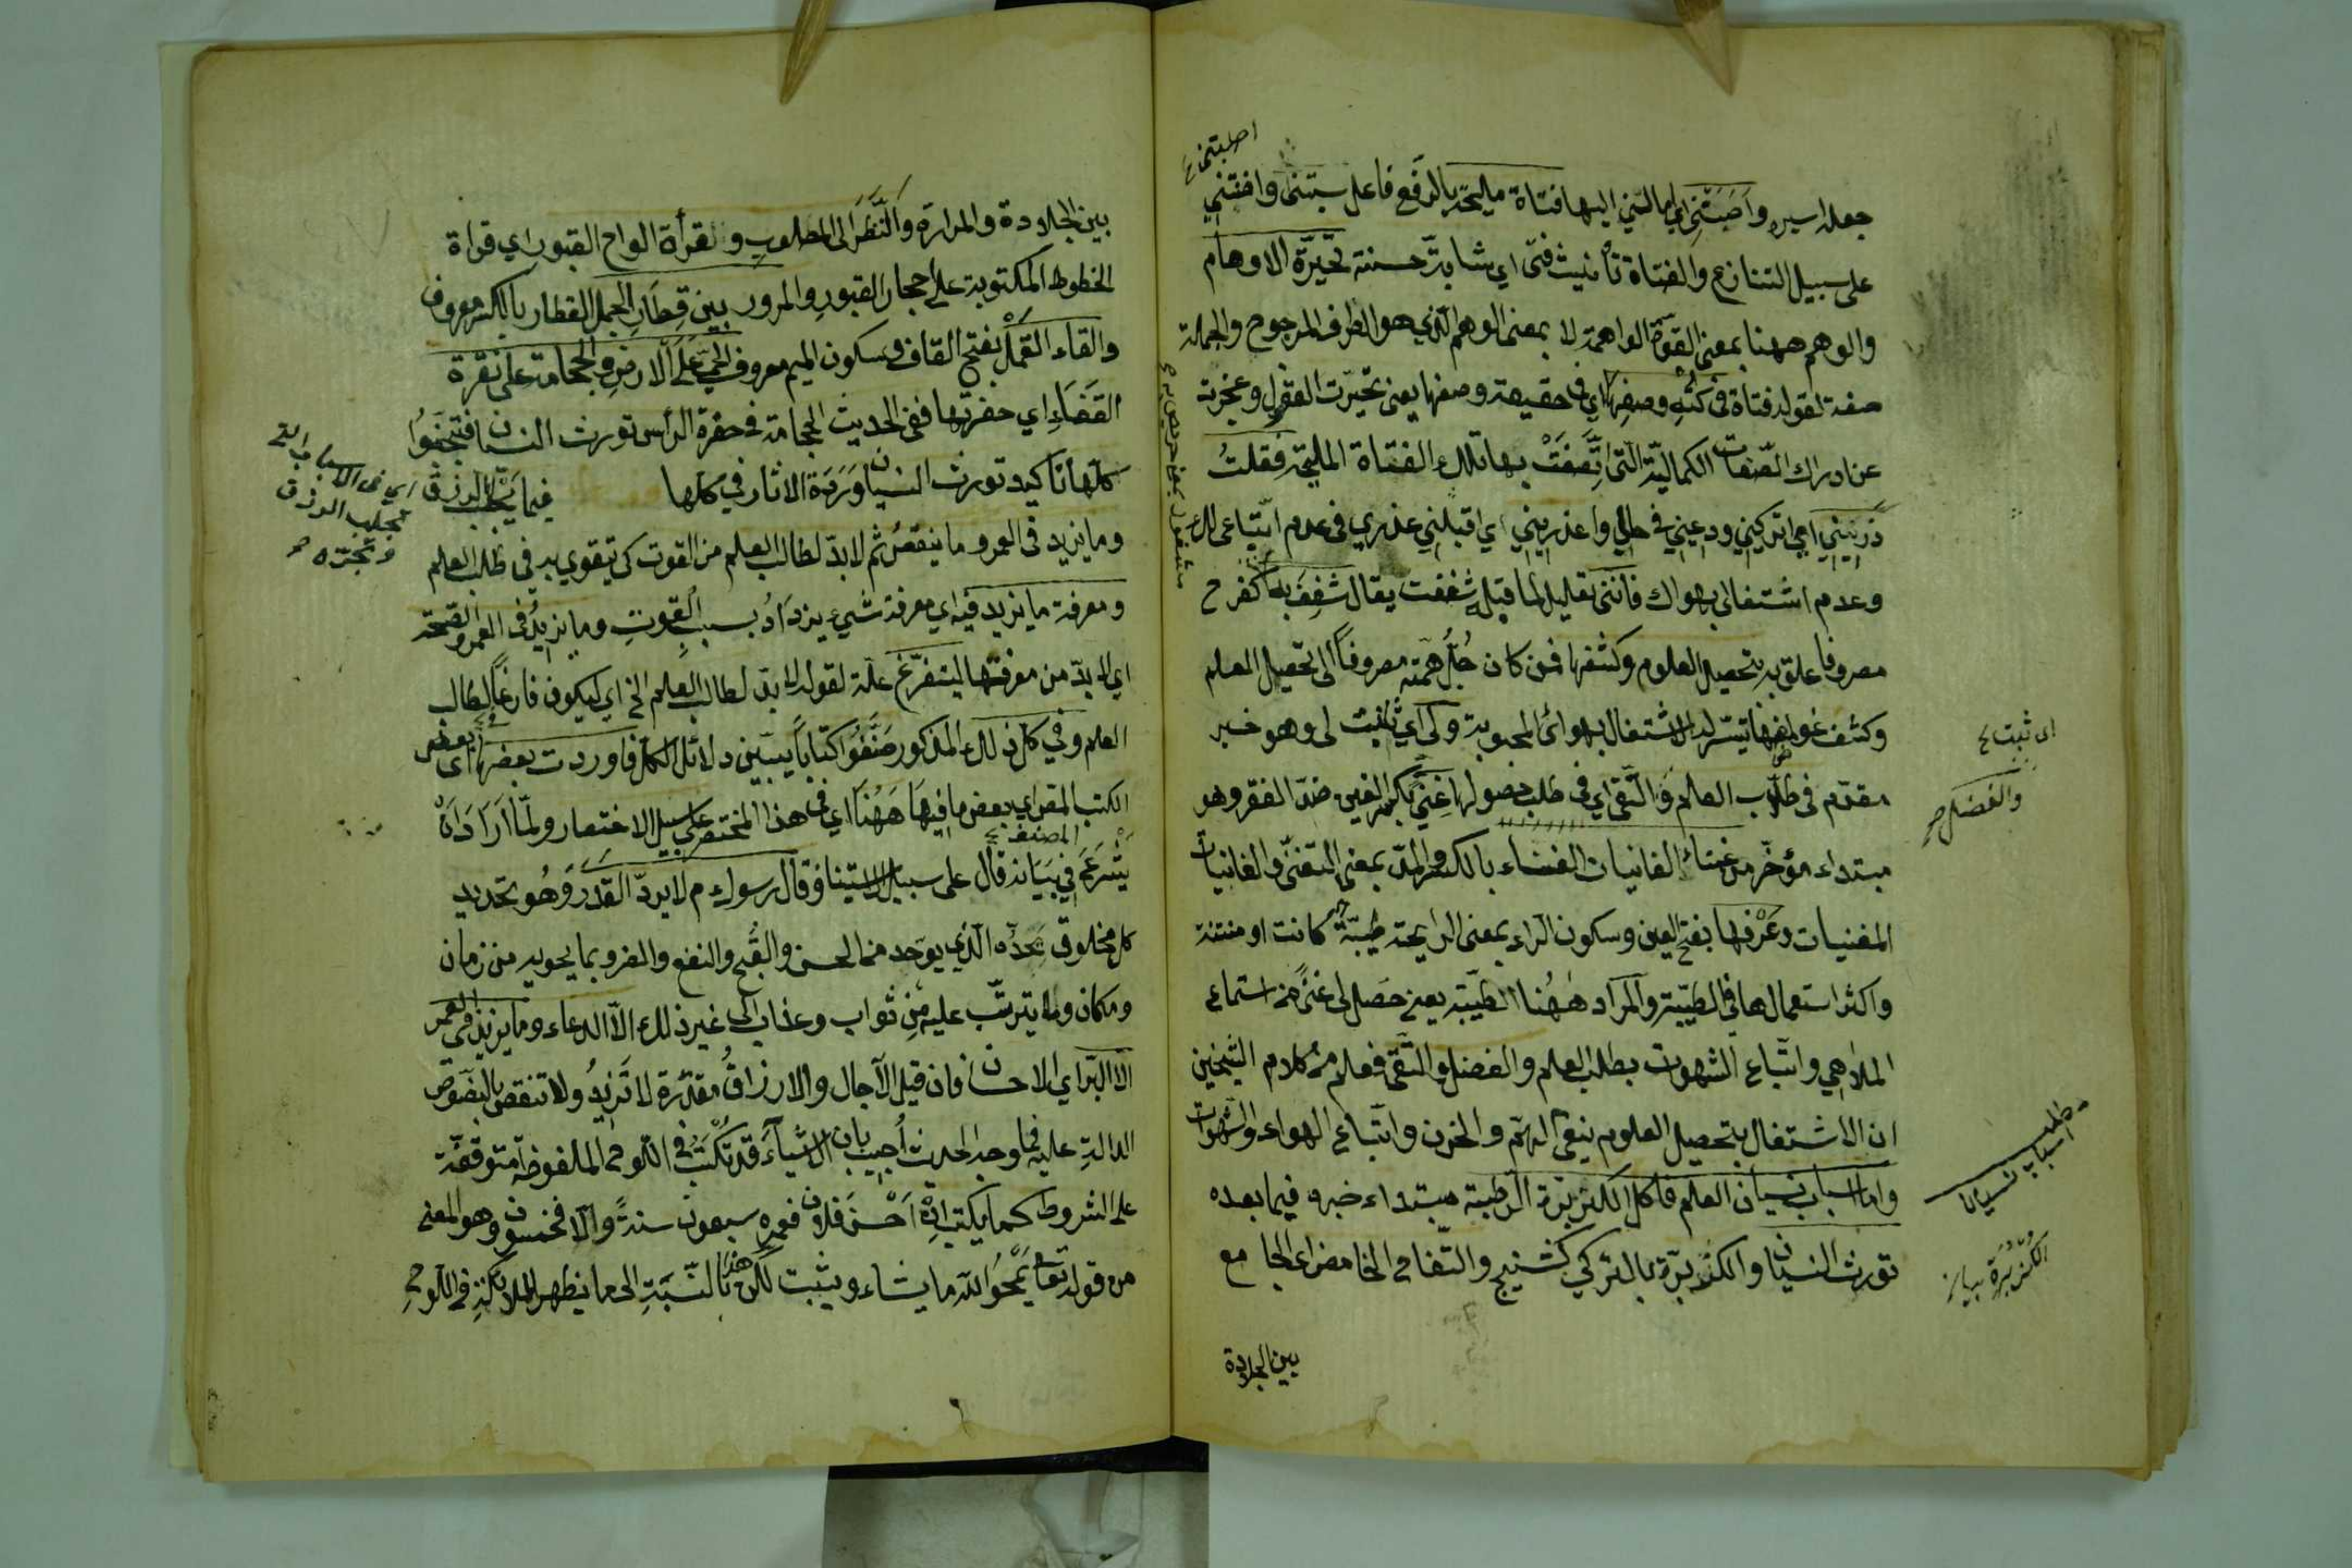 جعله اسيره واصبتني اي امالتني اليها فتاة مليحة بالرفع فاعل سبتنى واصبتني
على سبيل التنازع والفتاة تأنيث فتى اي شابة حسنة تحيّرة الاوهام
والوهم ههنا بمعنى القوّة الواهمة لا بمعنى الوهم الّذي هو الطرف المرجوح والجملة
صفة لقوله فتاة في كنه وصفها اي في حقيقة وصفها يعنى تحيّرت العقول وعجزت
عن ادراك الصّفات الكماليّة الّتى اتّصفت بها تلك الفتاة المليحة فقلتُ
ذريني اي اتركيني ودعيني في حالي واعذريني اي اقبلني عذري فى عدم اتّباعى لك
وعدم اشتغالى بهواك فانّنى تعليل لما قبله شغفت يقال شغف به كفرح
مصروفا علق به بتحصيل العلوم وكشفها فمن كان جُلّ همّته مصروفاً الى تحصيل العلم
وكشف غوامضها لا تيسّر له الاشتغال بهوائ المحبوبة ولى اي ثابت لى وهو خبر
مقدّم فى طلاب العلم والتّقى اي فى طلب حصولها غنى بكسر الغين ضدّ الفقر وهو
مبتداء مؤخّر من غناء الغانيات الغناء بالكسر والمدّ بمعنى التغنّى والغانيات
المغنيات وعرفها بفتح العين وسكون الرّاء بمعنى الرايحة طيّبة كانت او منتنة
واكثر استعمالها فى الطيّبة والمراد ههُنا الطيّبة يعنى حصل لى غنىً من استماع
الملاهي واتّباع الشهوت بطلب العلم والفضل والتّقى فعلم من كلام الشيخين
ان الاشتغال بتحصيل العلوم ينفى الهمّ والحزن واتّباع الهواء والشهوات
واما اسباب نسيان العلم فاكل الكزبرة الرّطبة مبتداء خبره فيما بعده
تورث النسيان والكزبرة بالتركي كشنيج والتّفاح الحامض اى الجامع
بين الجلادة
اى ثبتت
والفضل صح
مطلب اسباب نسيان
الكزبرة
بين الجلادة والمرارة والنّظر الى المصلوب وقرأة الواح القبور اي قراة
الخطوط المكتوبة على احجار القبور والمرور بين قطار الجمل القطار بالكسر معروف
والقاء القمل بفتح القاف وسكون الميم معروف الحيّ على الارض والحجامة على نقرة
القفاء اي حفرتها ففى الحديث الحجامة في حفرة الرأس تورث النسيان فتجنّبوا
كلّها تاكيد تورث النسيان وردة الاثار في كلها فيما يجلب الرزق
وما يزيد فى العمر وما ينقص ثم لا بدّ لطالب العلم من القوت كى يتقوي به فى طلب العلم
ومعرفة ما يزيد فيه اي معرفة شيئ يزداد بسبب القوت وما يزيد فى العمر والصّحة
اي لا بدّ من معرفتها ليتفرّغ علّة لقوله لا بدّ لطالب العلم الخ اي ليكون فارغاً لطلب
العلم وفي كل ذلك المذكور صنّفوا كتاباً يبيّن دلائل الكل فاوردت بعضها اى بعض
الكتب المقر اي بعض ما فيها ههُنا اي فى هذا المختصر على سبيل الاختصار ولمّا اراد ان
يشرع فى بيانه قال على سبيل الاستيناف قال رسول الله م لا يردّ القدر وهو تحديد
كل مخلوق بحدّه الّذي يوجد من الحسن والقبح والنفع والضر وبما يحويه من زمان
ومكان وما يترتّب عليه من ثواب وعذاب الى غير ذلك الاّ الدعاء وما يزيد فى العمر
الاّ البرّ اي الاحسان فان قيل الآجال والارزاق مقدّرة لا تزيدُ ولا تنقص بالنصوص
الدالة عليه فما وجه الحديث اُجيب بان الاشياء قد تكتب في اللّوح المحفوظ متوقفة
على الشروط كما يكتب ان احسن فلان فعمره سبعون سنةً والاّ فخمسون وهو المعنى
من قوله تعا يمحوا الله ما يشاء ويثبت لكن هذا بالنّسبة الى ما يظهر للملائكة فى اللّوح
اي فى الاسباب التى
تجلب الرزق
وتجرّه صح
المصنف